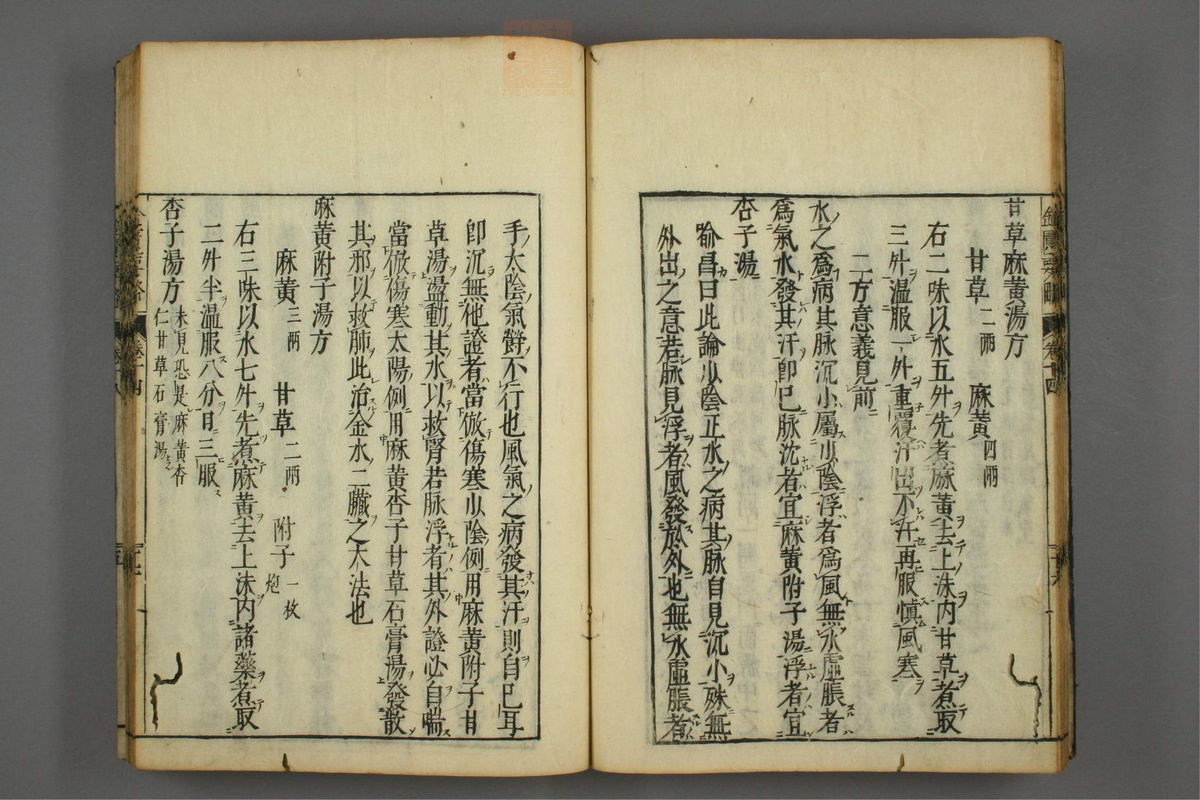 甘草麻黄湯方
甘草二兩 麻黄四兩
右二味以水五升先煮麻黄去上沫内甘草煮取
三升温服一升重覆汗出不汗再服慎風寒
二方意義見前
水之爲病其脉沉小屬少陰浮者爲風無水虚脹者
爲氣水發其汗卽已脉沈者宜麻黄附子湯浮者宜
杏子湯
喻昌曰此論少陰正水之病其脉自見沉小殊無
外出之意若脉見浮者風發於外也無水虚脹者
手太陰氣欝不行也風氣之病發其汗則自已耳
卽沉無他證者當倣傷寒少陰例用麻黄附子甘
草湯盪動其水以救腎若脉浮者其外證必自喘
當倣傷寒太陽例用麻黄杏子甘草石膏湯發散
其邪以救肺此治金水二臓之大法也
麻黄附子湯方
麻黄三兩 甘草二兩 附子一枚炮
右三味以水七升先煮麻黄去上沫内諸藥煮取
二升半温服八分日三服
杏子湯方未見恐是麻黄杏仁甘草石膏湯